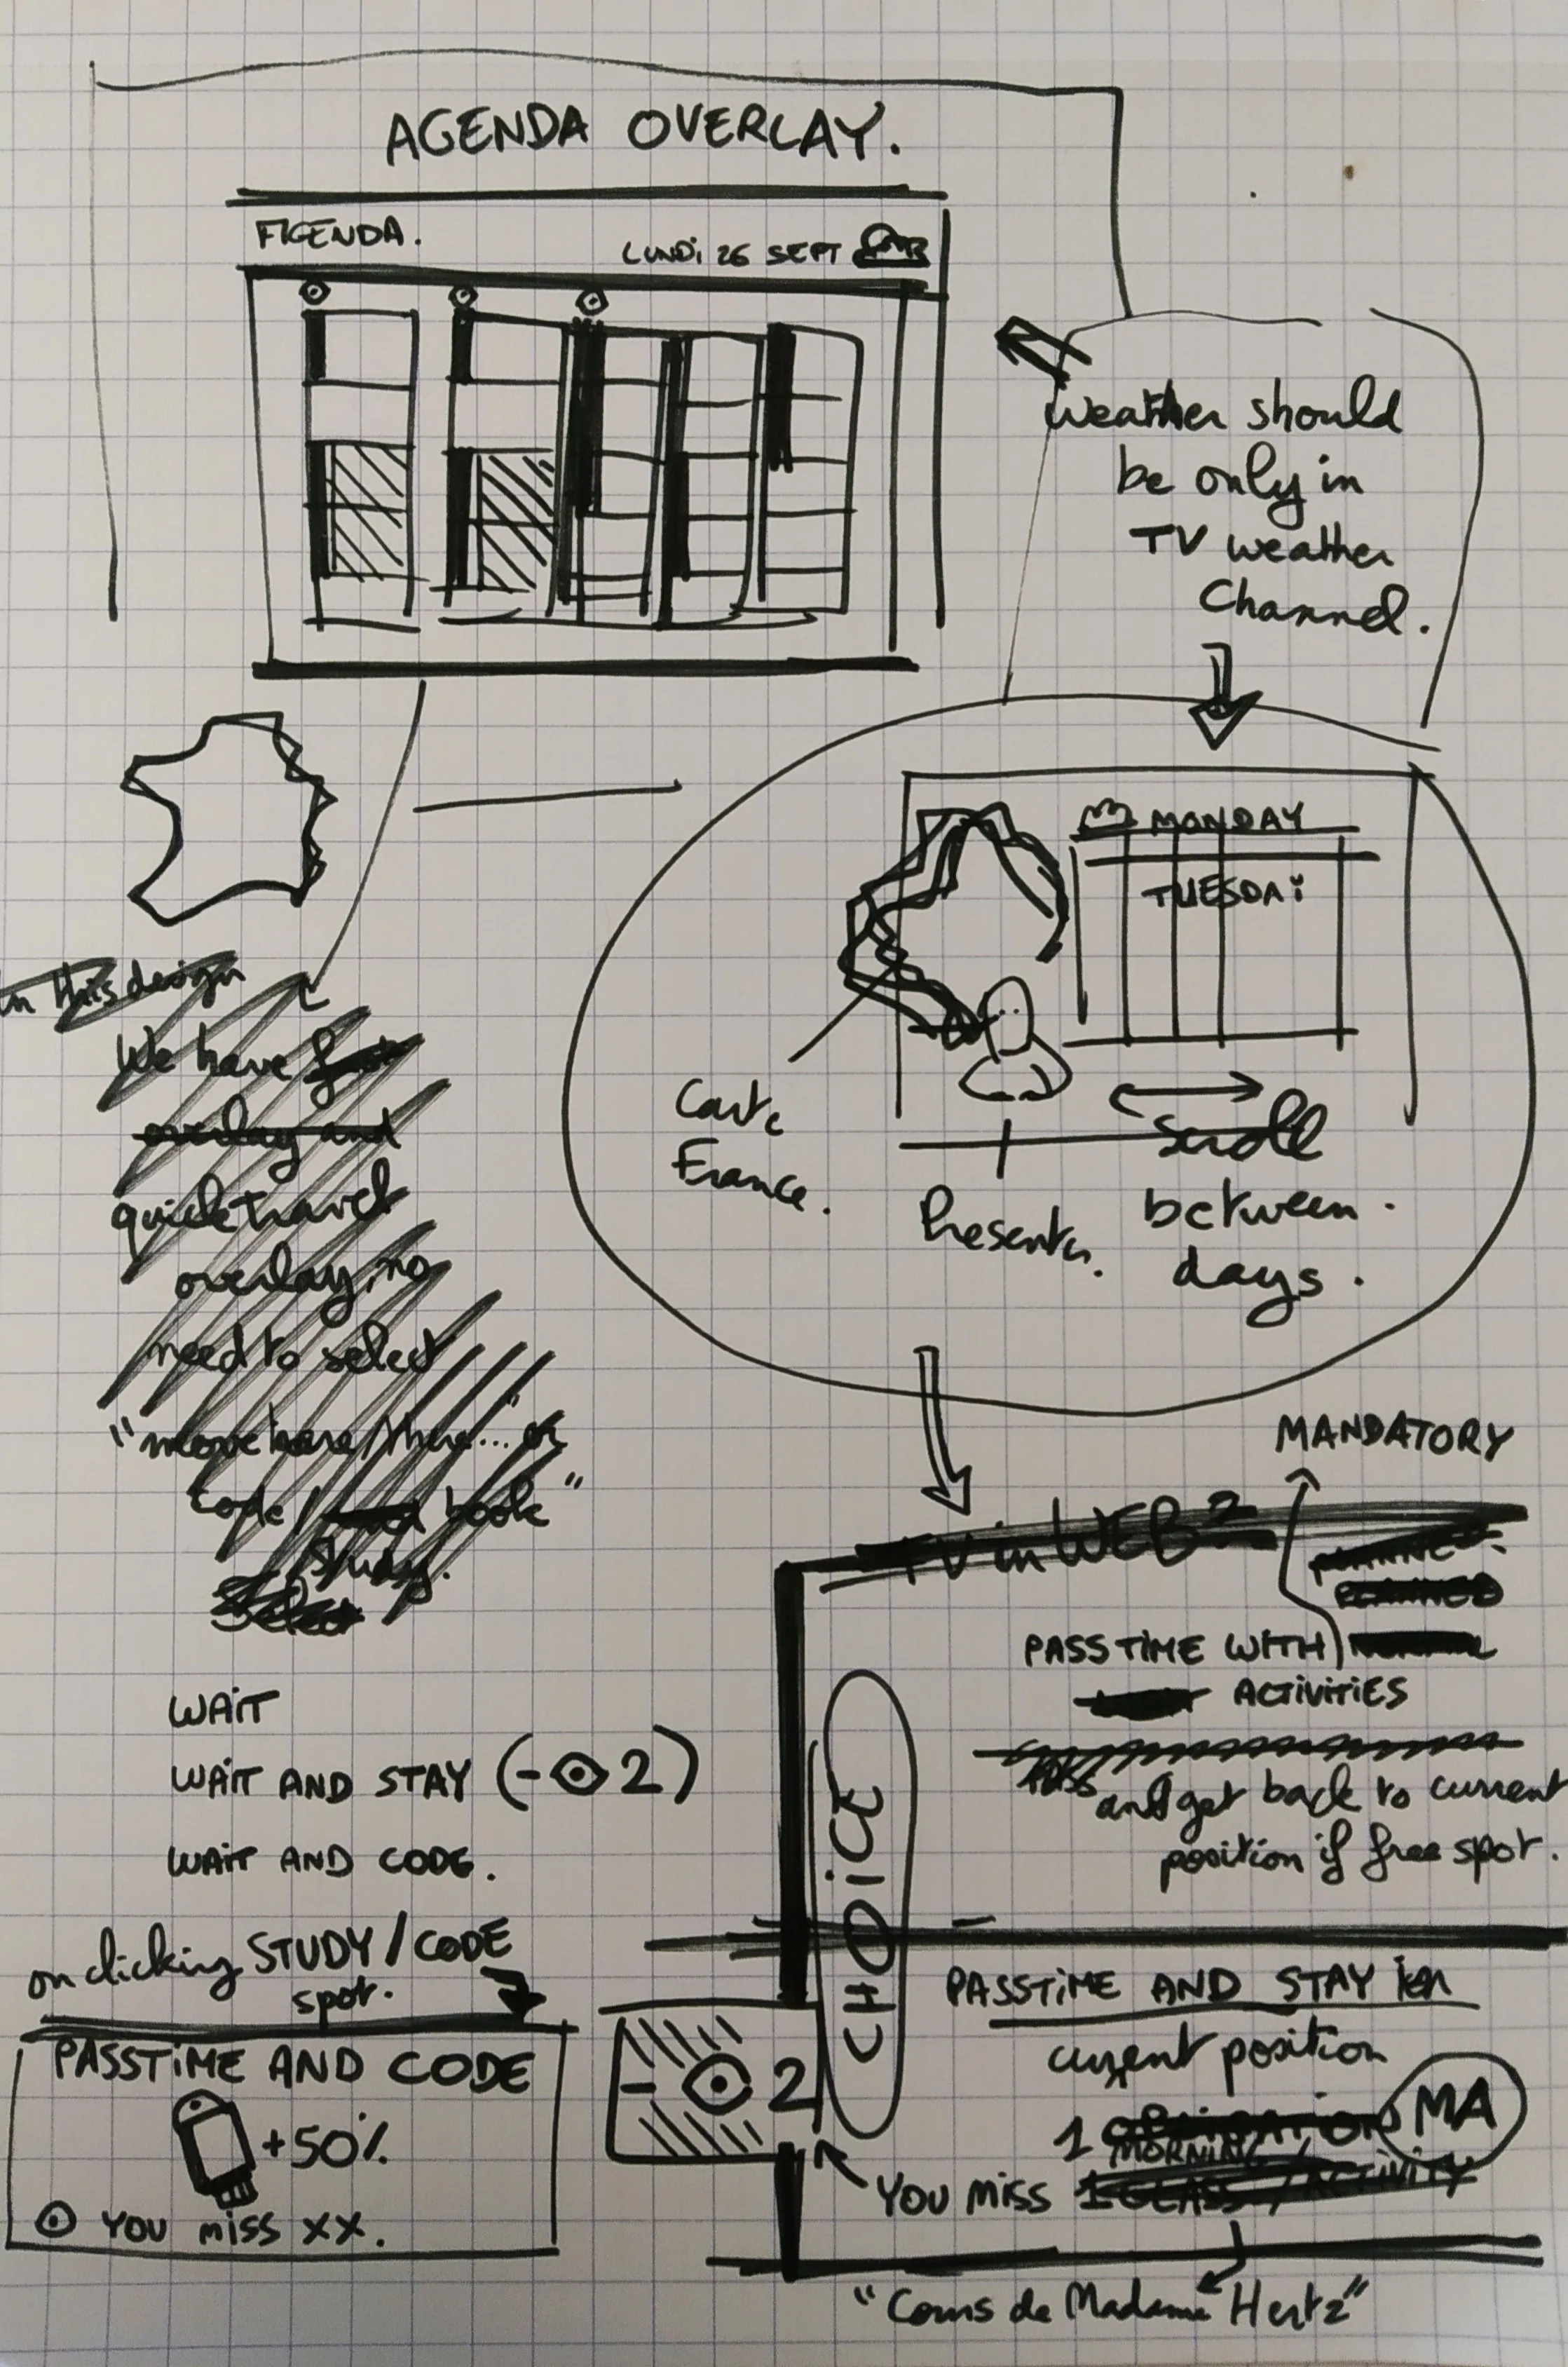 AGENDA OVERLAY.
AGENDA.
LUNDi 26 SEPT
Weather should
be only in
TV weather
Channel.
MONDAY
TUESDAi
Carte
France.
Presenter.
Scroll
between.
days.
in this design
We have
overlay and
quick travel
overlay, no
need to select
"move here/there..." or
code / book"
study.
Select
MANDATORY
TV in WEB ?
PASSTiME WiTH
ACTiViTiES
and get back to current
position if free spot.
WAiT
WAiT AND STAY (- 2)
WAiT AND CODE.
CHOiCE
on clicking STUDY / CODE
spot.
PASSTiME AND CODE
+50%
YOU MiSS XX.
- 2
PASSTiME AND STAY in
current position
1 OBLiGATiON MA
MORNiNG
YOU MiSS 1 CLASS / ACTiViTY
"Cours de Madame Hertz"